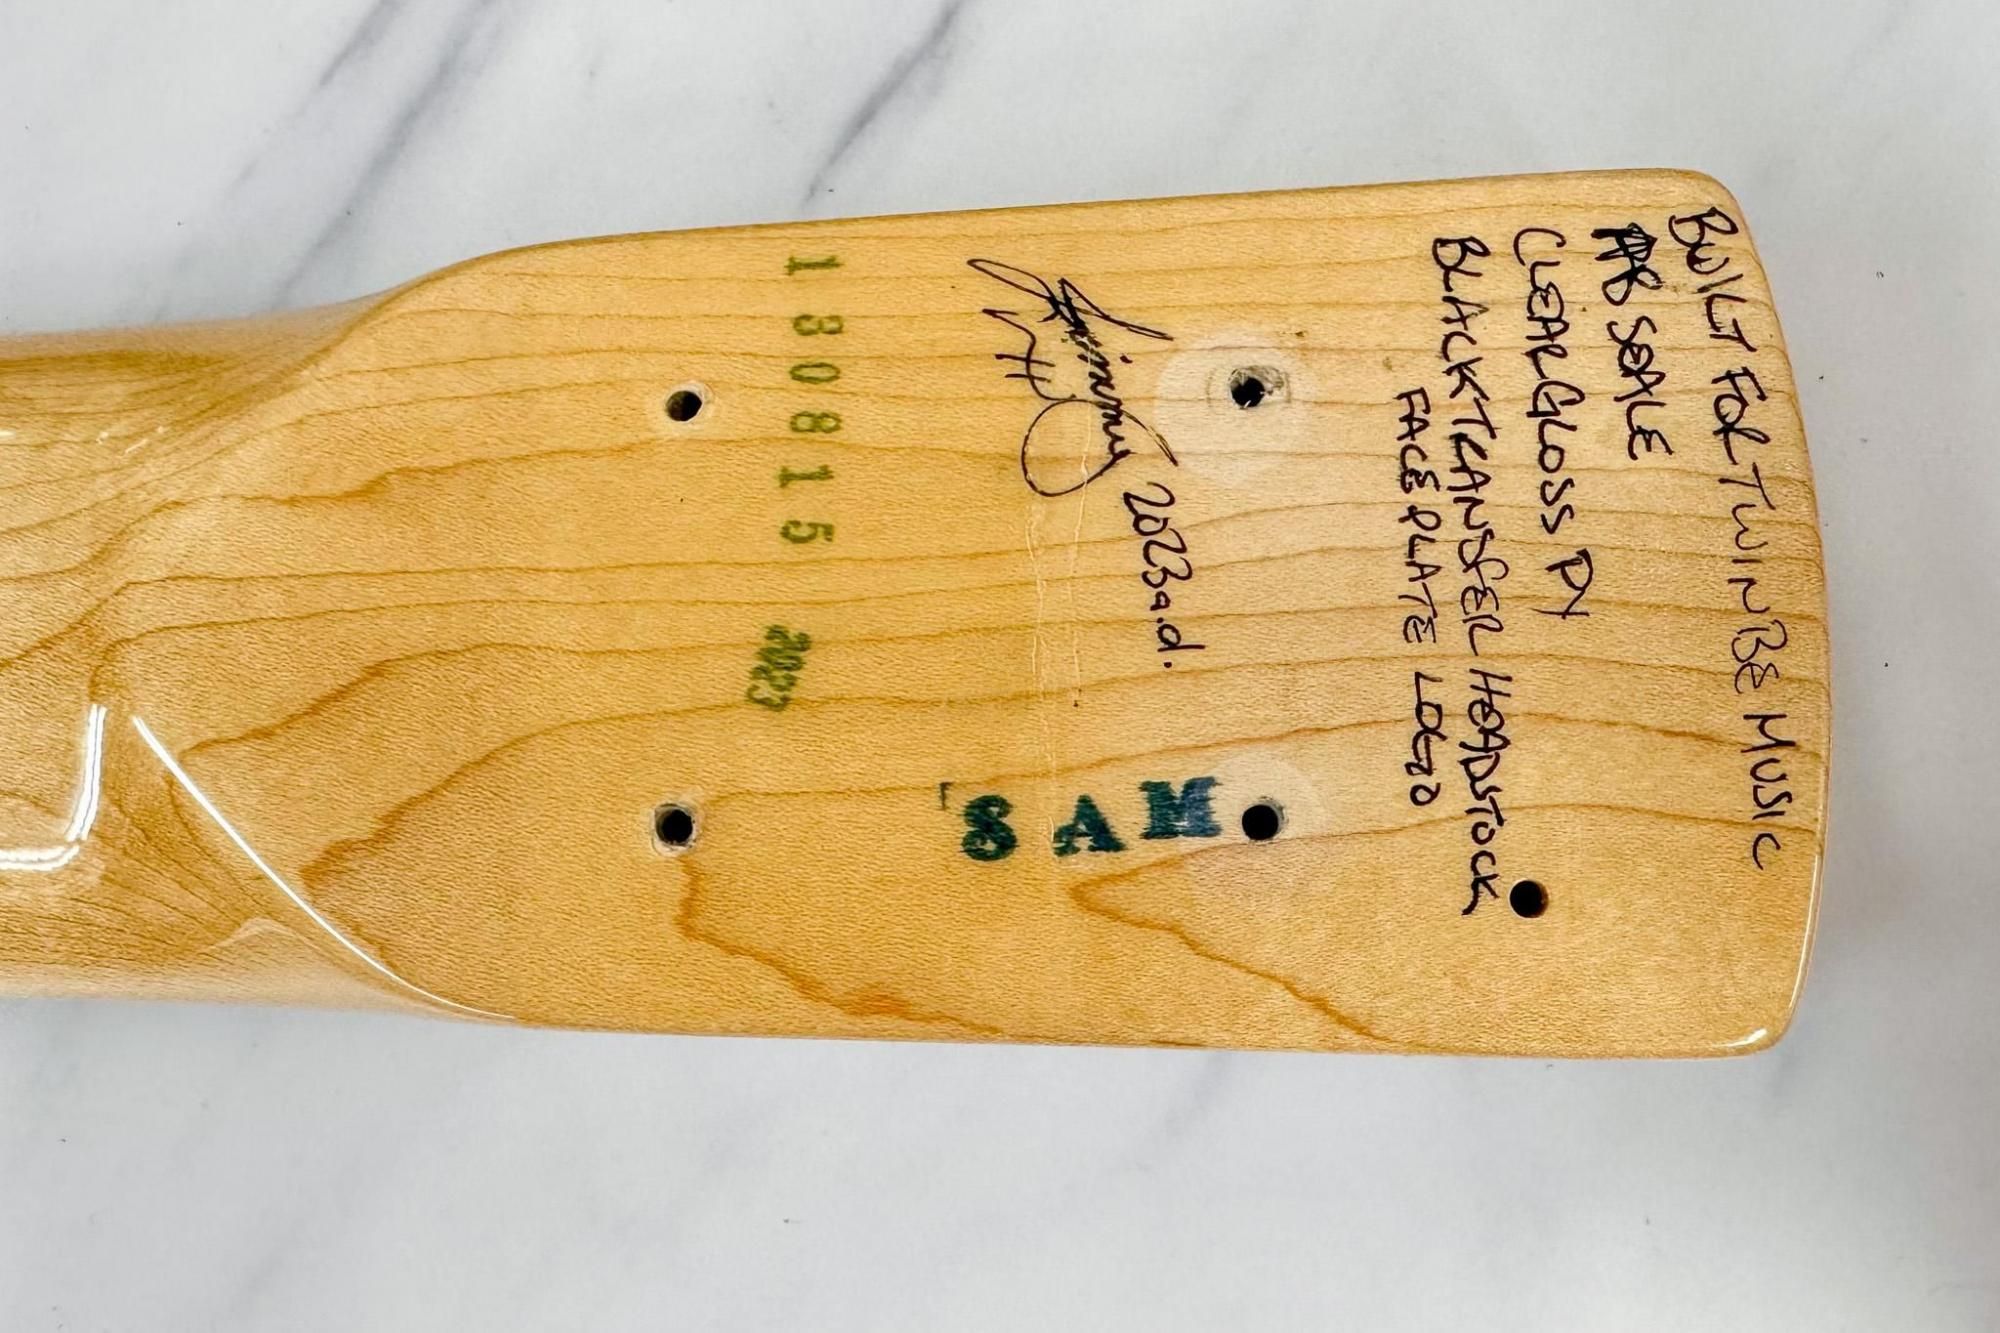 BUILT FOR TWINBE MUSIC
SEALE
CLEAR GLOSS PY
BLACK TRANSFER HEADSTOCK
FACEPLATE LOGO
Jimmy
2023a.d.
SAM
130815
2023